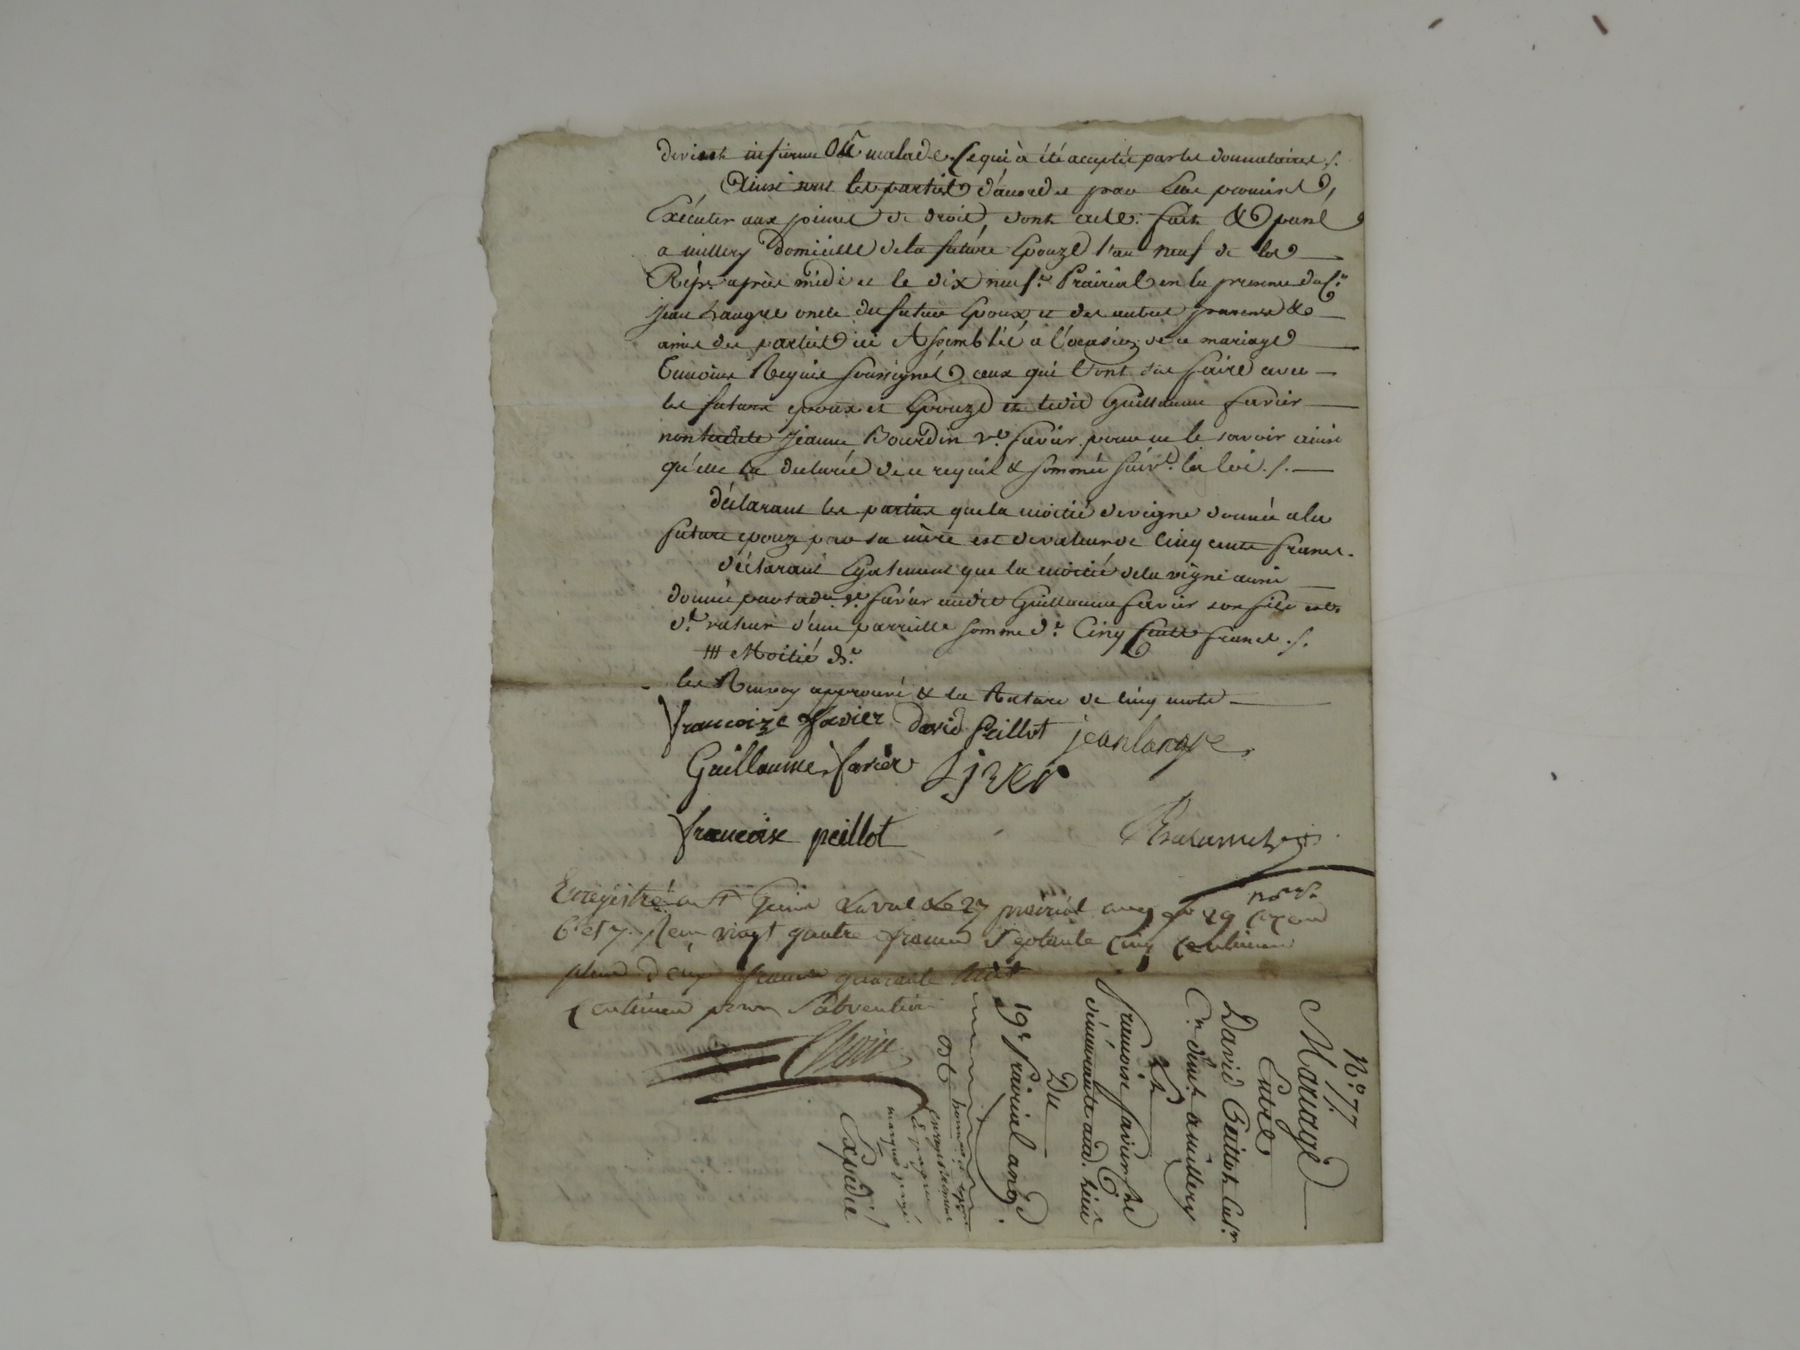 devient infirme Ou malade, Ce qui à été accepté par les donnataires ./.
Ainsi sont les parties d'accord et pour Leur promis
Exécuter aux peines de droit, dont acte. fait & passé
a millery Domicille de la future Epouze l'an neuf de la
Rép.e après midi et le dix neuf.e Prairial en la presence du C.n
Jean Langre oncle du futur Epoux, et des autres parens &
amis des parties ici Assemblés à l'ocasion de ce mariage
temoins Requis soussignés, ceux qui l'ont sçu faire avec
les futurs epoux et Epouze et ledit Guillaume favier
non ladite Jeanne Bourdin v.e favier pour ne le savoir ainsi
qu'elle la declarée de ce requise & sommée suiv.t la loi ./.
déclarant les parties que la moitié de vigne donnée a la
future epouze par sa mère est de valeur de Cinq cents francs.
déclarant Egalement que la moitié de la vigne aussi
donnée par lad.e v.e favier audit Guillaume favier son fils est
d.e valeur d'une pareille somme d.e Cinq Cents francs ./.
Moitié d.e
les Renvoy approuvé & la Rature de cinq mots
francoize favier david Peillot jean langre
Guillaume favier
francoise peillot
not.re
Enregistré a St Genis Laval le 27 prairial an 9 f.o 29
6 et 7. Reçu vingt quatre francs septante cinq centimes
plus deux francs quarante huit
centimes pour Subvention
N.o 77
Mariage
Entre
David Peillot Cul.r
C.n dem.t a millery
Et
francoise favier f.lle
demeurante aud. lieu
Du
19.e Prairial an 9.
Expédié